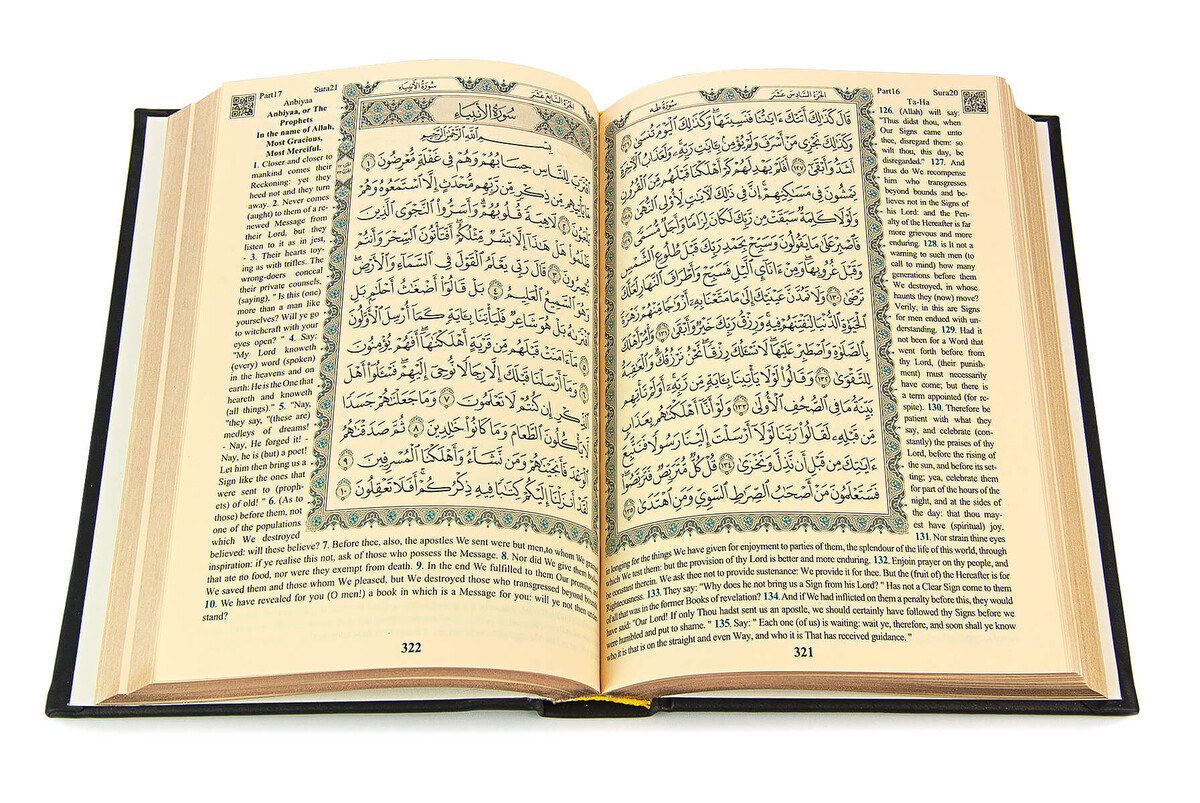 Part16 Sura20
الجُزْءُ السَّادِسَ عَشَرَ
سُورَةُ طه
قَالَ كَذَٰلِكَ أَتَتْكَ ءَايَٰتُنَا فَنَسِيتَهَا وَكَذَٰلِكَ ٱلْيَوْمَ تُنسَىٰ ١٢٦
وَكَذَٰلِكَ نَجْزِى مَنْ أَسْرَفَ وَلَمْ يُؤْمِنۢ بِـَٔايَٰتِ رَبِّهِۦ وَلَعَذَابُ ٱلْءَاخِرَةِ
أَشَدُّ وَأَبْقَىٰٓ ١٢٧ أَفَلَمْ يَهْدِ لَهُمْ كَمْ أَهْلَكْنَا قَبْلَهُم مِّنَ ٱلْقُرُونِ
يَمْشُونَ فِى مَسَٰكِنِهِمْ إِنَّ فِى ذَٰلِكَ لَءَايَٰتٍ لِّأُو۟لِى ٱلنُّهَىٰ ١٢٨
وَلَوْلَا كَلِمَةٌ سَبَقَتْ مِن رَّبِّكَ لَكَانَ لِزَامًا وَأَجَلٌ مُّسَمًّى ١٢٩
فَٱصْبِرْ عَلَىٰ مَا يَقُولُونَ وَسَبِّحْ بِحَمْدِ رَبِّكَ قَبْلَ طُلُوعِ ٱلشَّمْسِ
وَقَبْلَ غُرُوبِهَا وَمِنْ ءَانَآئِ ٱلَّيْلِ فَسَبِّحْ وَأَطْرَافَ ٱلنَّهَارِ لَعَلَّكَ
تَرْضَىٰ ١٣٠ وَلَا تَمُدَّنَّ عَيْنَيْكَ إِلَىٰ مَا مَتَّعْنَا بِهِۦٓ أَزْوَٰجًا مِّنْهُمْ زَهْرَةَ
ٱلْحَيَوٰةِ ٱلدُّنْيَا لِنَفْتِنَهُمْ فِيهِ وَرِزْقُ رَبِّكَ خَيْرٌ وَأَبْقَىٰ ١٣١ وَأْمُرْ أَهْلَكَ
بِٱلصَّلَوٰةِ وَٱصْطَبِرْ عَلَيْهَا لَا نَسْـَٔلُكَ رِزْقًا نَّحْنُ نَرْزُقُكَ وَٱلْعَٰقِبَةُ
لِلتَّقْوَىٰ ١٣٢ وَقَالُوا۟ لَوْلَا يَأْتِينَا بِـَٔايَةٍ مِّن رَّبِّهِۦٓ أَوَلَمْ تَأْتِهِم
بَيِّنَةُ مَا فِى ٱلصُّحُفِ ٱلْأُولَىٰ ١٣٣ وَلَوْ أَنَّآ أَهْلَكْنَٰهُم بِعَذَابٍ
مِّن قَبْلِهِۦ لَقَالُوا۟ رَبَّنَا لَوْلَآ أَرْسَلْتَ إِلَيْنَا رَسُولًا فَنَتَّبِعَ
ءَايَٰتِكَ مِن قَبْلِ أَن نَّذِلَّ وَنَخْزَىٰ ١٣٤ قُلْ كُلٌّ مُّتَرَبِّصٌ فَتَرَبَّصُوا۟
فَسَتَعْلَمُونَ مَنْ أَصْحَٰبُ ٱلصِّرَٰطِ ٱلسَّوِىِّ وَمَنِ ٱهْتَدَىٰ ١٣٥
Ta-Ha
126. (Allah) will say:
"Thus didst thou, when
Our Signs came unto
thee, disregard them: so
wilt thou, this day, be
disregarded." 127. And
thus do We recompense
him who transgresses
beyond bounds and be-
lieves not in the Signs of
his Lord: and the Pen-
alty of the Hereafter is far
more grievous and more
enduring. 128. is it not a
warning to such men (to
call to mind) how many
generations before them
We destroyed, in whose
haunts they (now) move?
Verily, in this are Signs
for men endued with un-
derstanding. 129. Had it
not been for a Word that
went forth before from
thy Lord, (their punish-
ment) must necessarily
have come; but there is
a term appointed (for re-
spite). 130. Therefore be
patient with what they
say, and celebrate (con-
stantly) the praises of thy
Lord, before the rising of
the sun, and before its set-
ting; yea, celebrate them
for part of the hours of the
night, and at the sides of
the day: that thou may-
est have (spiritual) joy.
131. Nor strain thine eyes
in longing for the things We have given for enjoyment to parties of them, the splendour of the life of this world, through
which We test them: but the provision of thy Lord is better and more enduring. 132. Enjoin prayer on thy people, and
be constant therein. We ask thee not to provide sustenance: We provide it for thee. But the (fruit of) the Hereafter is for
Righteousness. 133. They say: "Why does he not bring us a Sign from his Lord? " Has not a Clear Sign come to them
of all that was in the former Books of revelation? 134. And if We had inflicted on them a penalty before this, they would
have said: "Our Lord! If only Thou hadst sent us an apostle, we should certainly have followed thy Signs before we
were humbled and put to shame. " 135. Say: " Each one (of us) is waiting: wait ye, therefore, and soon shall ye know
who it is that is on the straight and even Way, and who it is That has received guidance. "
321
Part17 Sura21
الجُزْءُ السَّابِعَ عَشَرَ
سُورَةُ الأَنبِيَاءِ
سُورَةُ الأَنبِيَاءِ
بِسْمِ ٱللَّهِ ٱلرَّحْمَٰنِ ٱلرَّحِيمِ
ٱقْتَرَبَ لِلنَّاسِ حِسَابُهُمْ وَهُمْ فِى غَفْلَةٍ مُّعْرِضُونَ ١
مَا يَأْتِيهِم مِّن ذِكْرٍ مِّن رَّبِّهِم مُّحْدَثٍ إِلَّا ٱسْتَمَعُوهُ وَهُمْ
يَلْعَبُونَ ٢ لَاهِيَةً قُلُوبُهُمْ وَأَسَرُّوا۟ ٱلنَّجْوَى ٱلَّذِينَ
ظَلَمُوا۟ هَلْ هَٰذَآ إِلَّا بَشَرٌ مِّثْلُكُمْ أَفَتَأْتُونَ ٱلسِّحْرَ وَأَنتُمْ
تُبْصِرُونَ ٣ قَالَ رَبِّى يَعْلَمُ ٱلْقَوْلَ فِى ٱلسَّمَآءِ وَٱلْأَرْضِ
وَهُوَ ٱلسَّمِيعُ ٱلْعَلِيمُ ٤ بَلْ قَالُوٓا۟ أَضْغَٰثُ أَحْلَٰمٍ بَلِ
ٱفْتَرَىٰهُ بَلْ هُوَ شَاعِرٌ فَلْيَأْتِنَا بِـَٔايَةٍ كَمَآ أُرْسِلَ ٱلْأَوَّلُونَ
٥ مَآ ءَامَنَتْ قَبْلَهُم مِّن قَرْيَةٍ أَهْلَكْنَٰهَآ أَفَهُمْ يُؤْمِنُونَ
٦ وَمَآ أَرْسَلْنَا قَبْلَكَ إِلَّا رِجَالًا نُّوحِىٓ إِلَيْهِمْ فَسْـَٔلُوٓا۟ أَهْلَ
ٱلذِّكْرِ إِن كُنتُمْ لَا تَعْلَمُونَ ٧ وَمَا جَعَلْنَٰهُمْ جَسَدًا
لَّا يَأْكُلُونَ ٱلطَّعَامَ وَمَا كَانُوا۟ خَٰلِدِينَ ٨ ثُمَّ صَدَقْنَٰهُمُ
ٱلْوَعْدَ فَأَنجَيْنَٰهُمْ وَمَن نَّشَآءُ وَأَهْلَكْنَا ٱلْمُسْرِفِينَ ٩
لَقَدْ أَنزَلْنَآ إِلَيْكُمْ كِتَٰبًا فِيهِ ذِكْرُكُمْ أَفَلَا تَعْقِلُونَ ١٠
Anbiyaa
Anbiyaa, or The
Prophets
In the name of Allah,
Most Gracious,
Most Merciful.
1. Closer and closer to
mankind comes their
Reckoning: yet they
heed not and they turn
away. 2. Never comes
(aught) to them of a re-
newed Message from
their Lord, but they
listen to it as in jest,
- 3. Their hearts toy-
ing as with trifles. The
wrong-doers conceal
their private counsels,
(saying), " Is this (one)
more than a man like
yourselves? Will ye go
to witchcraft with your
eyes open? " 4. Say:
"My Lord knoweth
(every) word (spoken)
in the heavens and on
earth: He is the One that
heareth and knoweth
(all things)." 5. "Nay,
"they say, "(these are)
medleys of dreams!
- Nay, He forged it! -
Nay, he is (but) a poet!
Let him then bring us a
Sign like the ones that
were sent to (proph-
ets) of old! " 6. (As to
those) before them, not
one of the populations
which We destroyed
believed: will these believe? 7. Before thee, also, the apostles We sent were but men, to whom We granted
inspiration: if ye realise this not, ask of those who possess the Message. 8. Nor did We give them bodies
that ate no food, nor were they exempt from death. 9. In the end We fulfilled to them Our promise,
We saved them and those whom We pleased, but We destroyed those who transgressed beyond bounds.
10. We have revealed for you (O men!) a book in which is a Message for you: will ye not then under-
stand?
322